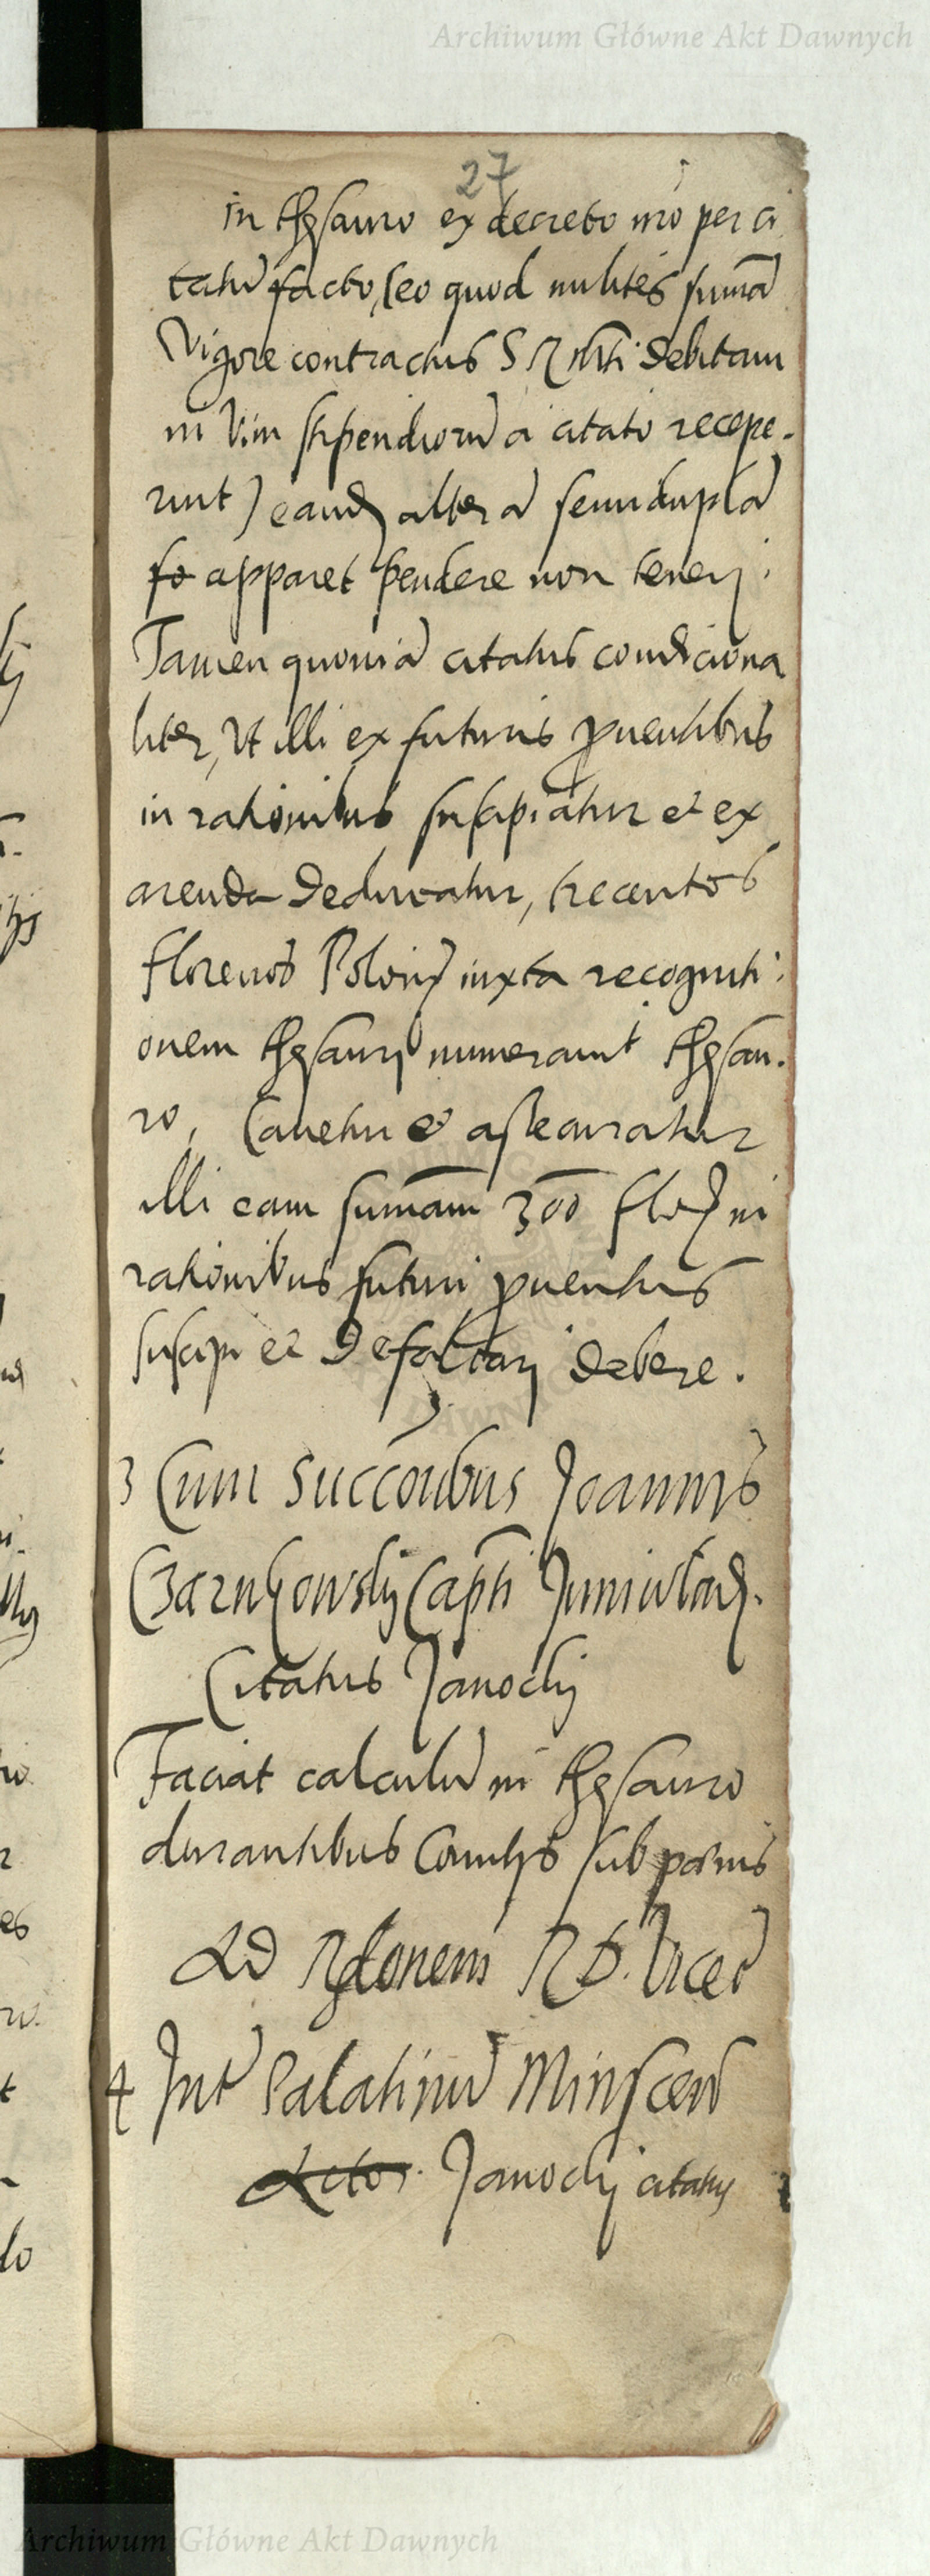 Archiwum Główne Akt Dawnych
27
in thesauro ex decreto nro per ci
tatū facto, (eo quod milites sumā
Vigore contractus S R Mti debitam
in Vim stipendiorū a citato recepe.
runt) eand alterā semiduplā
apparet pendere non tenerj.
Tamen quoniā citatus condiciona
liter, Ut illi ex futuris puentibus
in rationibus suscipiātur et ex
arenda deducatur, trecentos
florenos Polon iuxta recogniti:
onem thesaurj numeravit thesau.
ro, Cavetur et assecuratur
illi eam sumam 300 flo in
rationibus futuri puentus
suscipi et defalcarj debere.
3 Cum Succōribus Joannis
Czarnkowskij Capti Juniwlad.
Citatus Janockij
Faciat calculū in thesauro
durantibus Comitijs sub poenis
Ad Rlonem R D. Vice
4 Int Palatinū Minscen
Actor Janockij citatus
Archiwum Główne Akt Dawnych